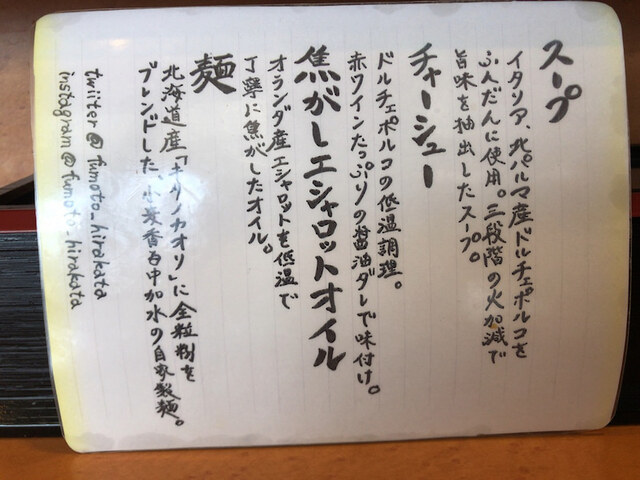 スープ
イタリア、北パルマ産ドルチェポルコを
ふんだんに使用。三段階の火加減で
旨味を抽出したスープ。
チャーシュー
ドルチェポルコの低温調理。
赤ワインたっぷりの醤油ダレで味付け。
焦がしエシャロットオイル
オランダ産エシャロットを低温で
丁寧に焦がしたオイル。
麺
北海道産「キタノカオリ」に全粒粉を
ブレンドした、小麦香る中加水の自家製麺。
twiiter@fumoto_hirakata
instagram@fumoto_hirakata